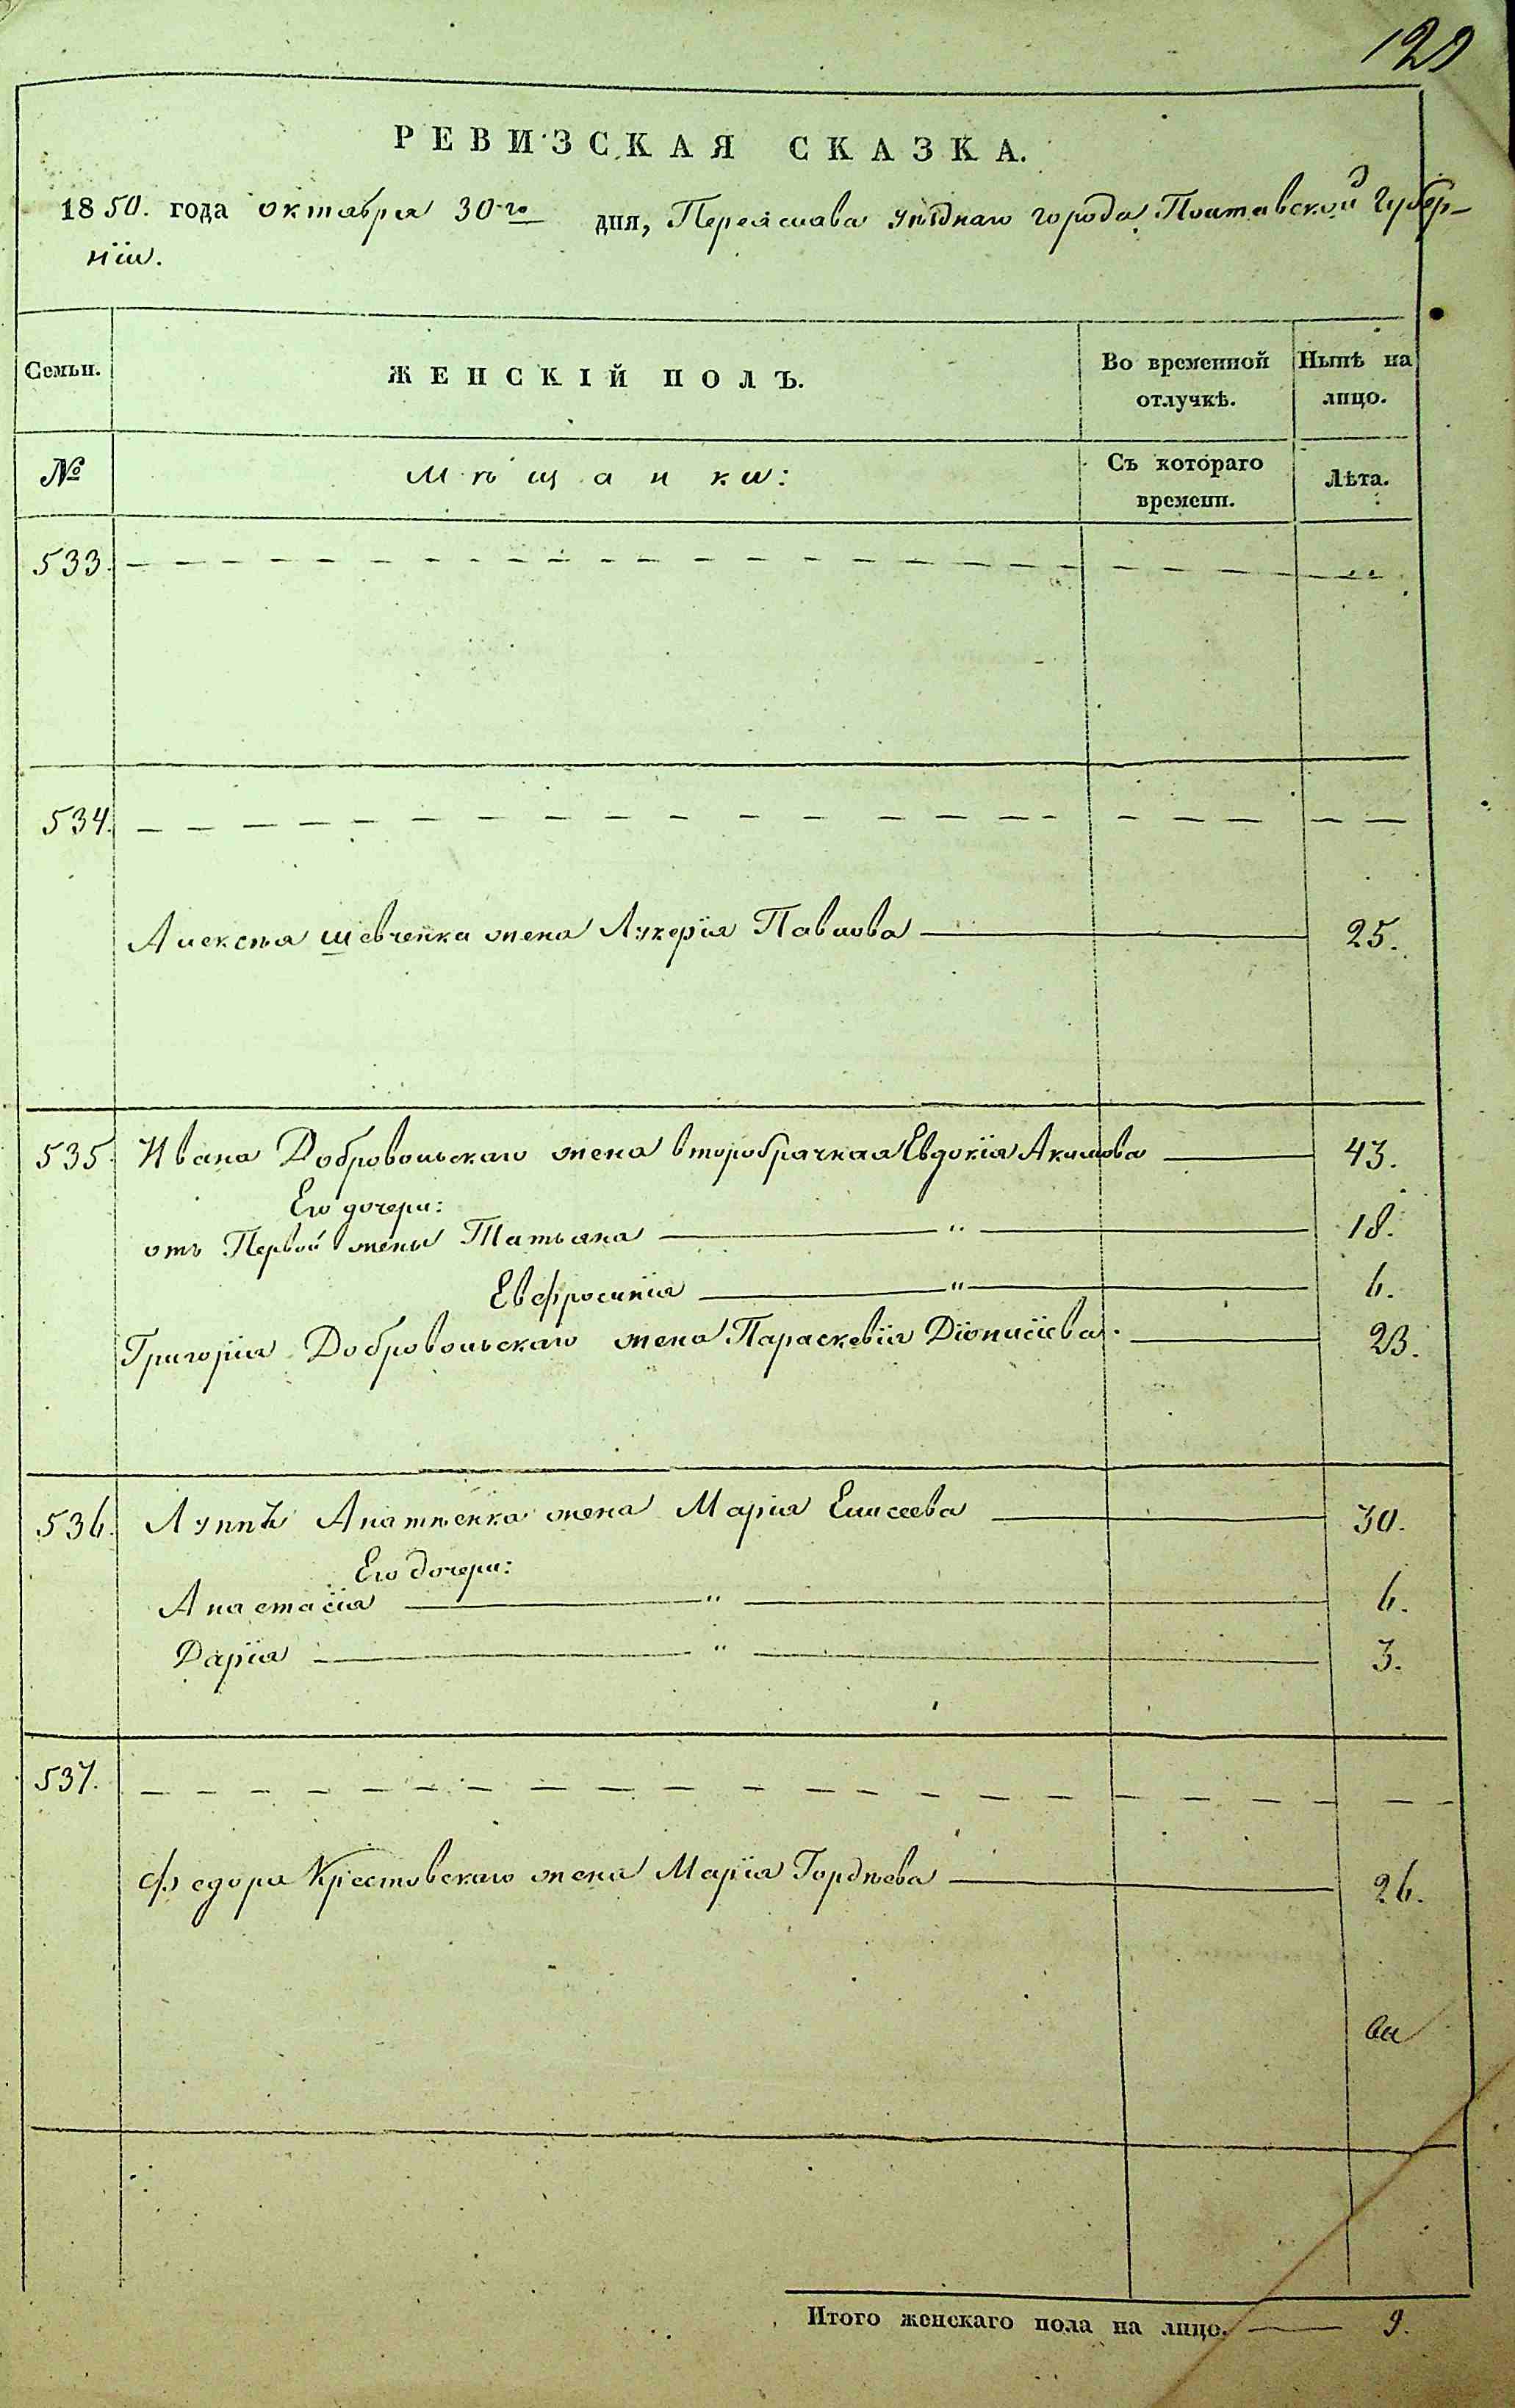 129
РЕВИЗСКАЯ СКАЗКА.
1850. года октября 30-го дня, Переяслава уѣзднаго города Полтавской Губер-
нїи.
Семьи. ЖЕНСКІЙ ПОЛЪ. Во временной отлучкѣ. Нынѣ на лицо.
№ Мѣщанки: Съ котораго времени. Лѣта.
533. — — — — — — — „
534. — — — — — — — —
Алексѣя Шевченка жена Лукерїя Павлова — 25.
535. Ивана Добровольскаго жена второбрачная Евдокїя Акимова — 43.
Его дочери:
отъ Первой жены Татьяна — „ — 18.
Евфросинїя — „ — 6.
Григорїя Добровольскаго жена Параскевїя Дїонисїева. — 23.
536. Луппы Игнатѣенка жена Марїя Елисеева — 30.
Его дочери:
Анастасїя — „ — 6.
Дарїя — „ — 3.
537. — — — — — — — —
Федора Крестовскаго жена Марїя Гордѣева — 26.
Итого женскаго пола на лицо. — 9.